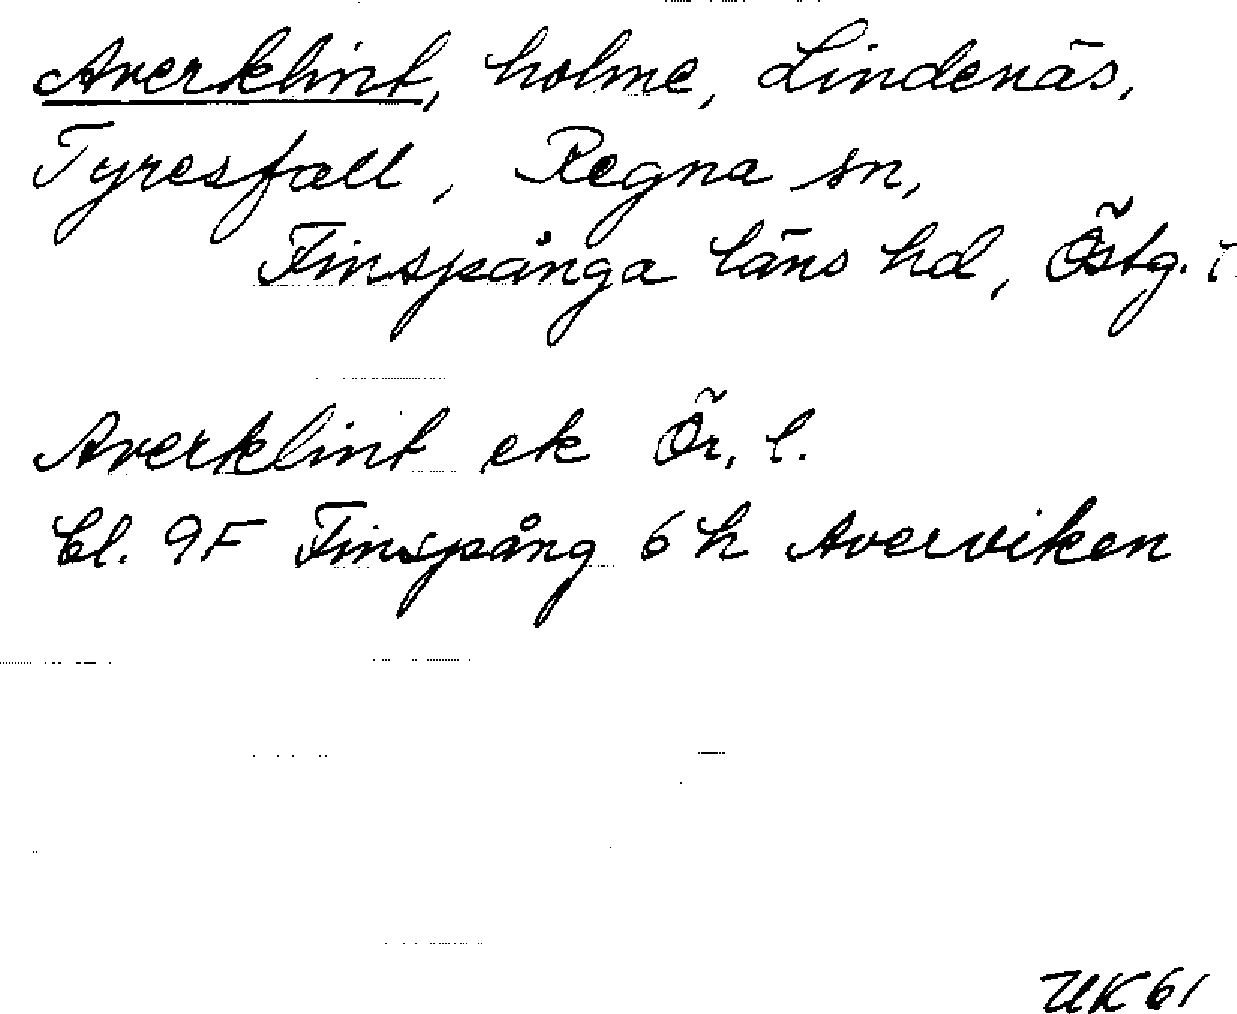 Averklint, holme, Lindenäs,
Tyresfall, Regna sn,
Finspånga läns hd, Östg.
Averklint ek Ör, l.
bl. 9F Finspång 6 h Averviken
UK 61